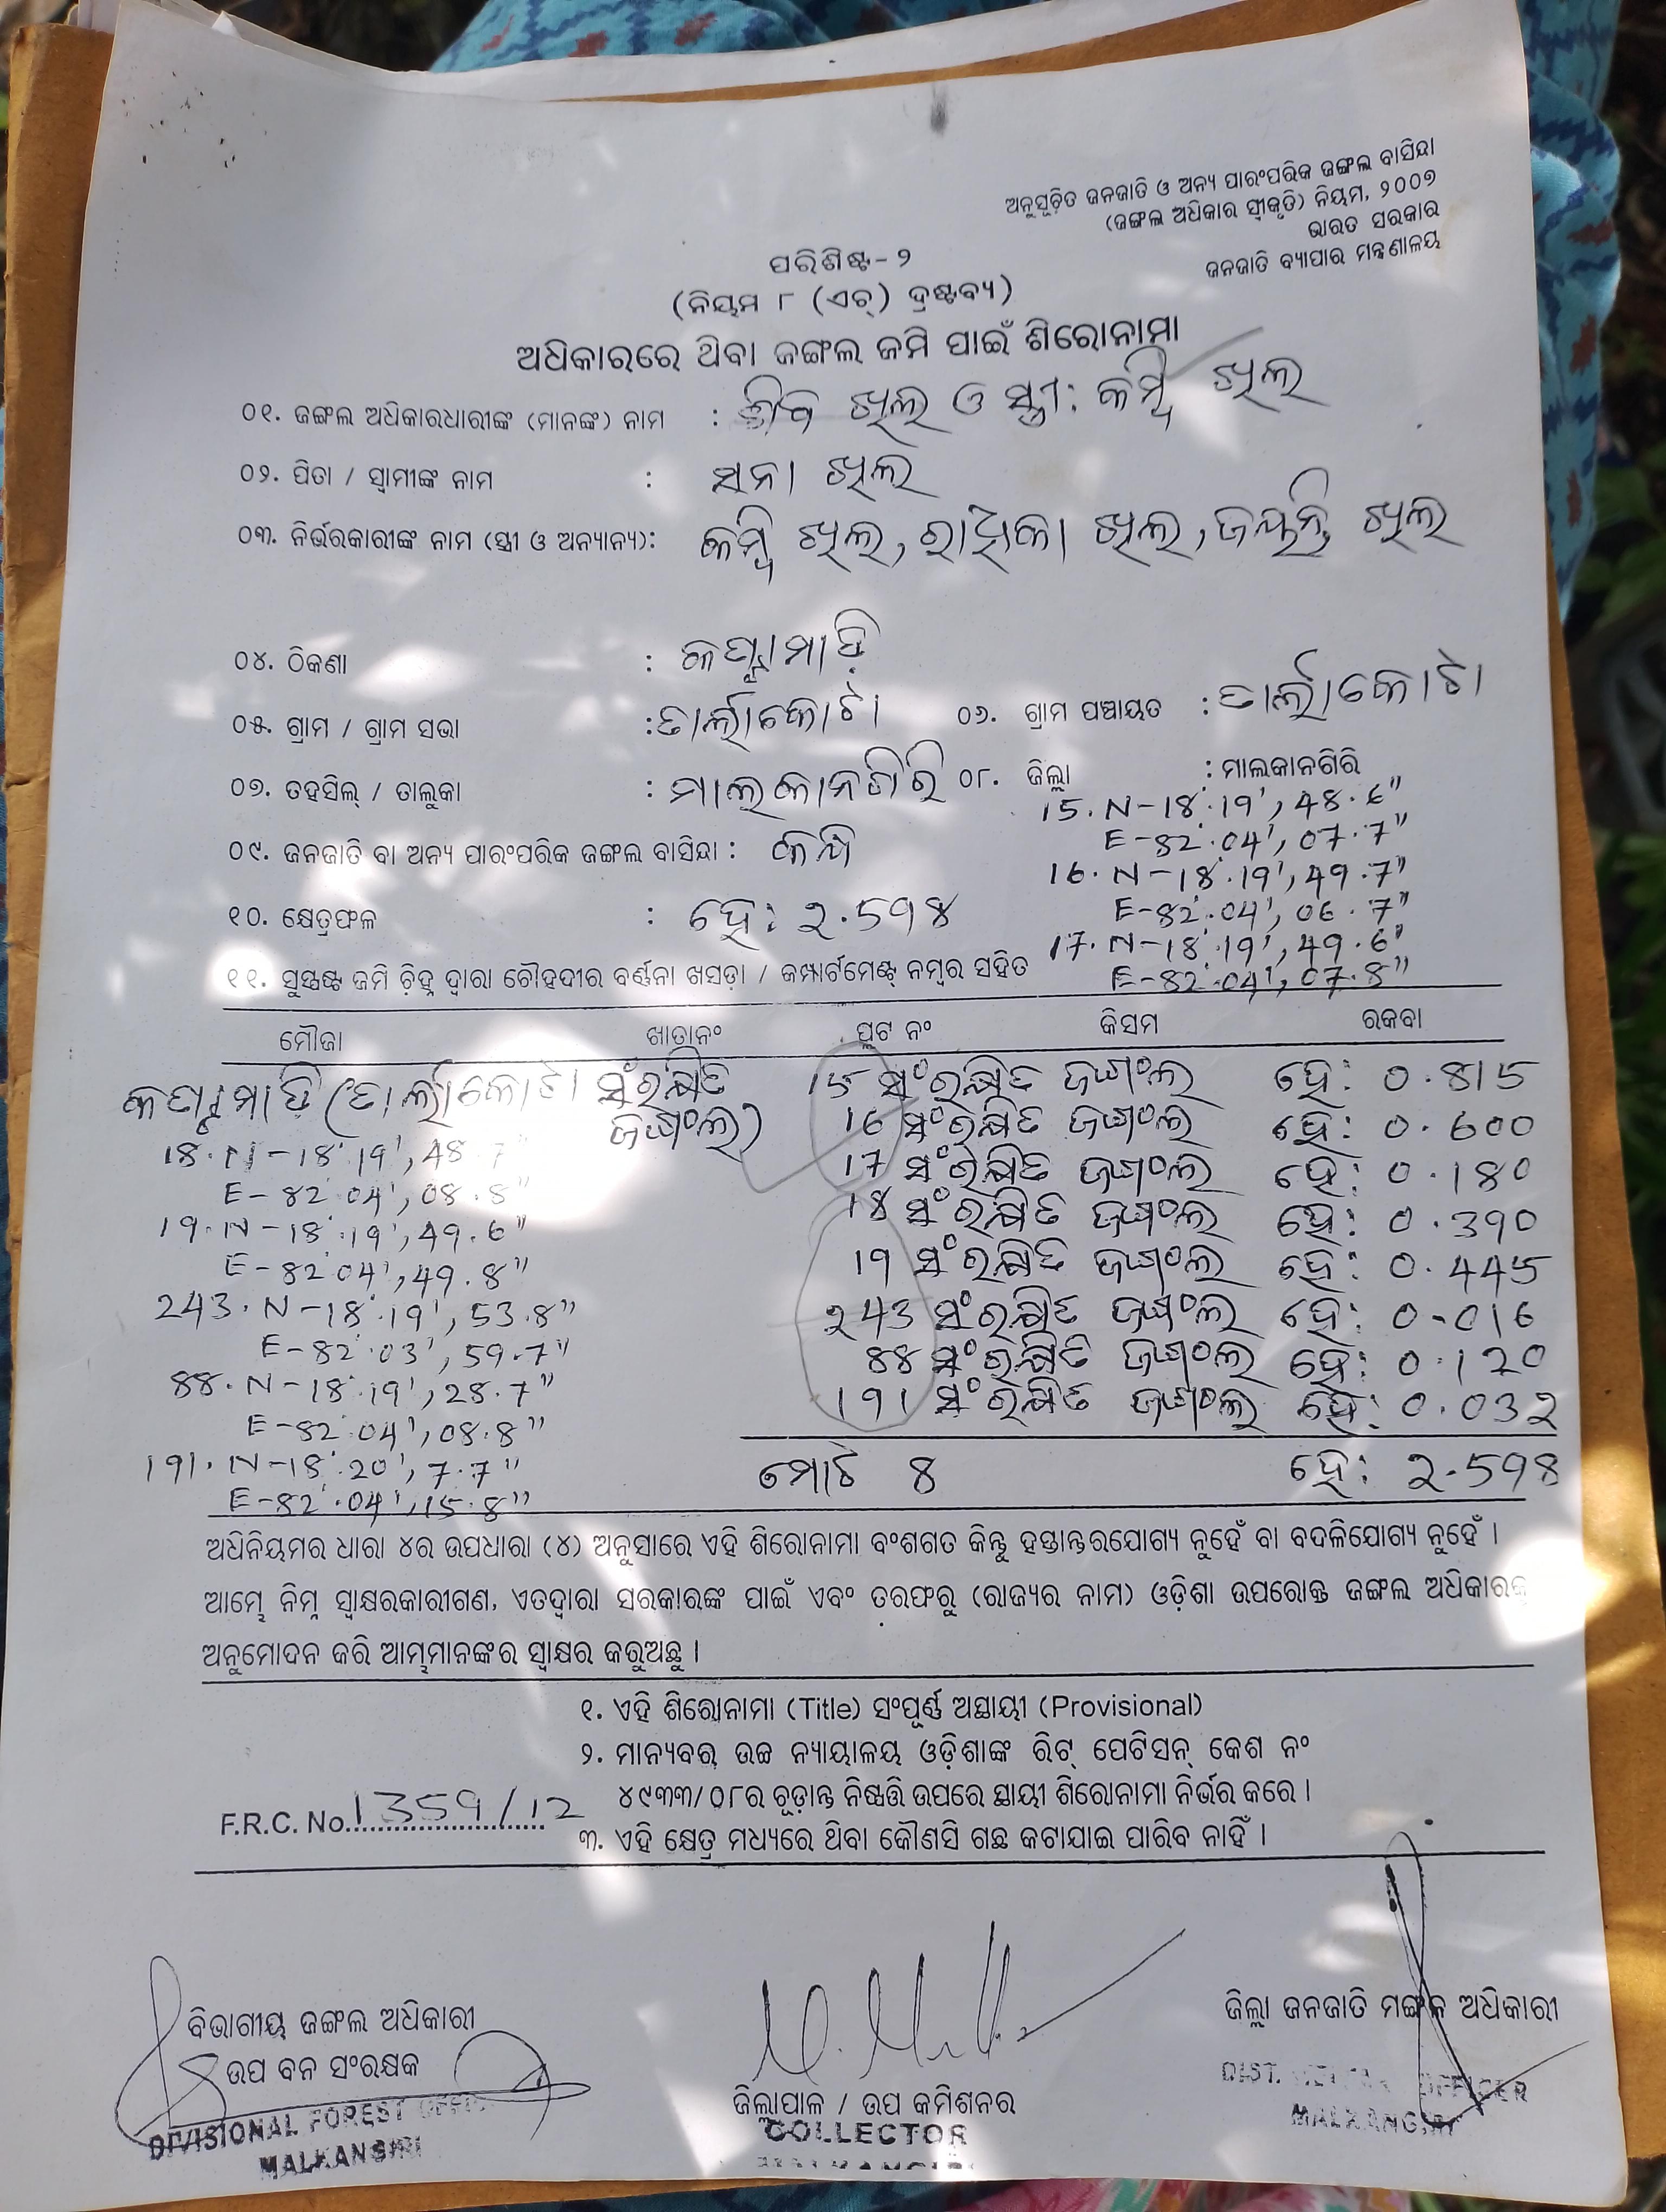 ଅନୁସୂଚିତ ଜନଜାତି ଓ ଅନ୍ୟ ପାରଂପରିକ ଜଙ୍ଗଲ ବାସିନ୍ଦା
(ଜଙ୍ଗଲ ଅଧିକାର ସ୍ୱୀକୃତି) ନିୟମ, ୨୦୦୭
ଭାରତ ସରକାର
ଜନଜାତି ବ୍ୟାପାର ମନ୍ତ୍ରଣାଳୟ
ପରିଶିଷ୍ଟ-୨
(ନିୟମ ୮ (ଏଚ୍) ଦ୍ରଷ୍ଟବ୍ୟ)
ଅଧିକାରରେ ଥିବା ଜଙ୍ଗଲ ଜମି ପାଇଁ ଶିରୋନାମା
୦୧. ଜଙ୍ଗଲ ଅଧିକାରଧାରୀଙ୍କ (ମାନଙ୍କ) ନାମ : ଖିଲ ଓ ସ୍ତ୍ରୀ: କମ୍ବି ଖିଲ
୦୨. ପିତା / ସ୍ୱାମୀଙ୍କ ନାମ : ସନା ଖିଲ
୦୩. ନିର୍ଭରକାରୀଙ୍କ ନାମ (ସ୍ତ୍ରୀ ଓ ଅନ୍ୟାନ୍ୟ): କମ୍ବି ଖିଲ, ରାଧିକା ଖିଲ, ଜୟନ୍ତି ଖିଲ
୦୪. ଠିକଣା :
୦୫. ଗ୍ରାମ / ଗ୍ରାମ ସଭା : ତାର୍ଲାକୋଟା ୦୬. ଗ୍ରାମ ପଞ୍ଚାୟତ : ତାର୍ଲାକୋଟା
୦୭. ତହସିଲ୍ / ତାଲୁକା : ମାଲକାନଗିରି ୦୮. ଜିଲ୍ଲା : ମାଲକାନଗିରି
15. N-18°.19', 48.6"
E-82°.04', 07.7"
୦୯. ଜନଜାତି ବା ଅନ୍ୟ ପାରଂପରିକ ଜଙ୍ଗଲ ବାସିନ୍ଦା :
16. N-18°.19', 49.7"
E-82°.04', 06.7"
୧୦. କ୍ଷେତ୍ରଫଳ : ହେ: 2.598
17. N-18°.19', 49.6"
E-82°.04', 07.8"
୧୧. ସୁସ୍ପଷ୍ଟ ଜମି ଚିହ୍ନ ଦ୍ୱାରା ଚୌହଦୀର ବର୍ଣ୍ଣନା ଖସଡ଼ା / କମ୍ପାର୍ଟମେଣ୍ଟ ନମ୍ବର ସହିତ
ମୌଜା ଖାତାନଂ ପ୍ଲଟ ନଂ କିସମ ରକବା
(ତାର୍ଲାକୋଟା ସଂରକ୍ଷିତ ଜଙ୍ଗଲ)
15 ସଂରକ୍ଷିତ ଜଙ୍ଗଲ ହେ: 0.815
16 ସଂରକ୍ଷିତ ଜଙ୍ଗଲ ହେ: 0.600
17 ସଂରକ୍ଷିତ ଜଙ୍ଗଲ ହେ: 0.180
18 ସଂରକ୍ଷିତ ଜଙ୍ଗଲ ହେ: 0.390
19 ସଂରକ୍ଷିତ ଜଙ୍ଗଲ ହେ: 0.445
243 ସଂରକ୍ଷିତ ଜଙ୍ଗଲ ହେ: 0.016
88 ସଂରକ୍ଷିତ ଜଙ୍ଗଲ ହେ: 0.120
191 ସଂରକ୍ଷିତ ଜଙ୍ଗଲ ହେ: 0.032
18. N-18°.19', 48.7"
E-82°.04', 08.8"
19. N-18°.19', 49.6"
E-82°.04', 49.8"
243. N-18°.19', 53.8"
E-82°.03', 59.7"
88. N-18°.19', 28.7"
E-82°.04', 08.8"
191. N-18°.20', 7.7"
E-82°.04', 15.8"
ମୋଟ 8 ହେ: 2.598
ଅଧିନିୟମର ଧାରା ୪ର ଉପଧାରା (୪) ଅନୁସାରେ ଏହି ଶିରୋନାମା ବଂଶଗତ କିନ୍ତୁ ହସ୍ତାନ୍ତରଯୋଗ୍ୟ ନୁହେଁ ବା ବଦଳିଯୋଗ୍ୟ ନୁହେଁ ।
ଆମ୍ଭେ ନିମ୍ନ ସ୍ୱାକ୍ଷରକାରୀଗଣ, ଏତଦ୍ୱାରା ସରକାରଙ୍କ ପାଇଁ ଏବଂ ତରଫରୁ (ରାଜ୍ୟର ନାମ) ଓଡ଼ିଶା ଉପରୋକ୍ତ ଜଙ୍ଗଲ ଅଧିକାରକୁ
ଅନୁମୋଦନ କରି ଆମ୍ଭମାନଙ୍କର ସ୍ୱାକ୍ଷର କରୁଅଛୁ ।
୧. ଏହି ଶିରୋନାମା (Title) ସଂପୂର୍ଣ୍ଣ ଅସ୍ଥାୟୀ (Provisional)
୨. ମାନ୍ୟବର ଉଚ୍ଚ ନ୍ୟାୟାଳୟ ଓଡ଼ିଶାଙ୍କ ରିଟ୍ ପେଟିସନ୍ କେଶ ନଂ
୪୯୩୩/୦୮ର ଚୂଡ଼ାନ୍ତ ନିଷ୍ପତ୍ତି ଉପରେ ସ୍ଥାୟୀ ଶିରୋନାମା ନିର୍ଭର କରେ ।
F.R.C. No. 1359/12
୩. ଏହି କ୍ଷେତ୍ର ମଧ୍ୟରେ ଥିବା କୌଣସି ଗଛ କଟାଯାଇ ପାରିବ ନାହିଁ ।
ବିଭାଗୀୟ ଜଙ୍ଗଲ ଅଧିକାରୀ
ଉପ ବନ ସଂରକ୍ଷକ
DIVISIONAL FOREST OFFICER
MALKANGIRI
ଜିଲ୍ଲାପାଳ / ଉପ କମିଶନର
COLLECTOR
MALKANGIRI
ଜିଲ୍ଲା ଜନଜାତି ମଙ୍ଗଳ ଅଧିକାରୀ
DIST. WELFARE OFFICER
MALKANGIRI